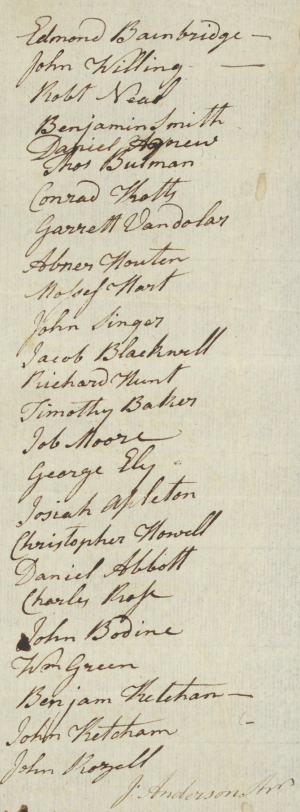 Edmond Bainbridge —
John Willing —
Robt Neal
Benjamin Smith
Daniel Agnew
Thos Bulman
Conrad Kotts
Garrett Vandolar
Abner Houten
Mosses Hart
John Singer
Jacob Blackwell
Richard Hunt
Timothy Baker
Job Moore
George Ely
Josiah Apleton
Christopher Howell
Daniel Abbott
Charles Rose
John Bodine
Wm Green
Benjam Ketchan —
John Ketcham -
John Rozell
Jo Anderson